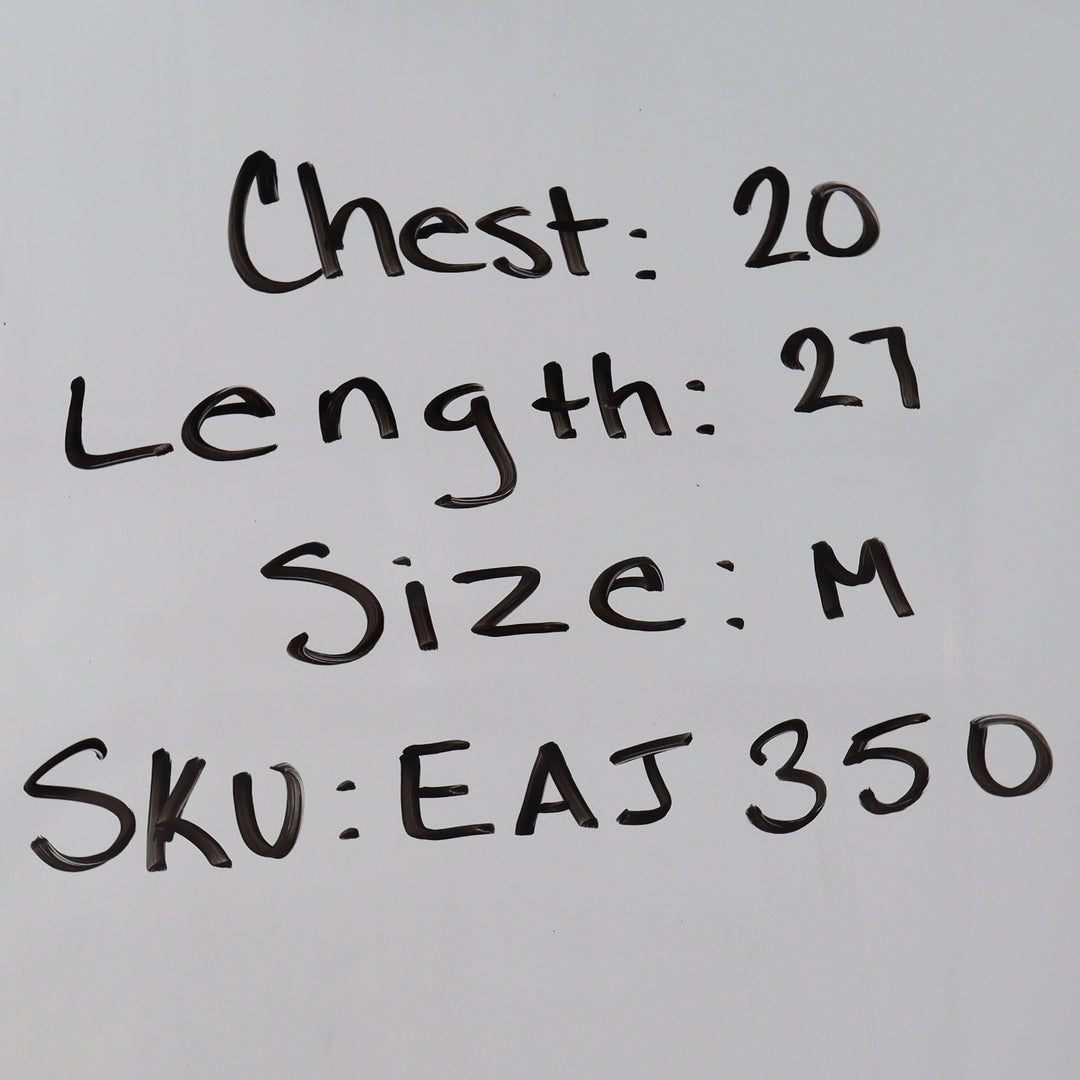 Chest: 20
Length: 27
Size: M
SKU: EAJ 350